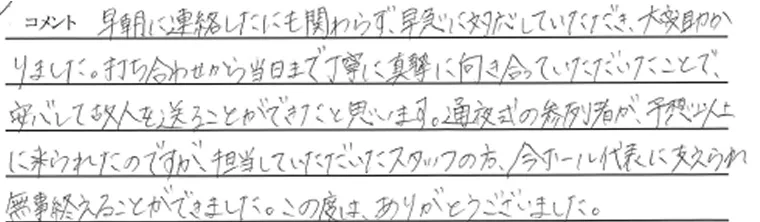 コメント 早朝に連絡したにも関わらず、早急に対応していただき、大変助か
りました。打ち合わせから当日まで丁寧に真摯に向き合っていただいたことで、
安心して故人を送ることができたと思います。通夜式の参列者が、予想以上
に来られたのですが、担当していただいたスタッフの方、今ホール代表に支えられ
無事終えることができました。この度は、ありがとうございました。